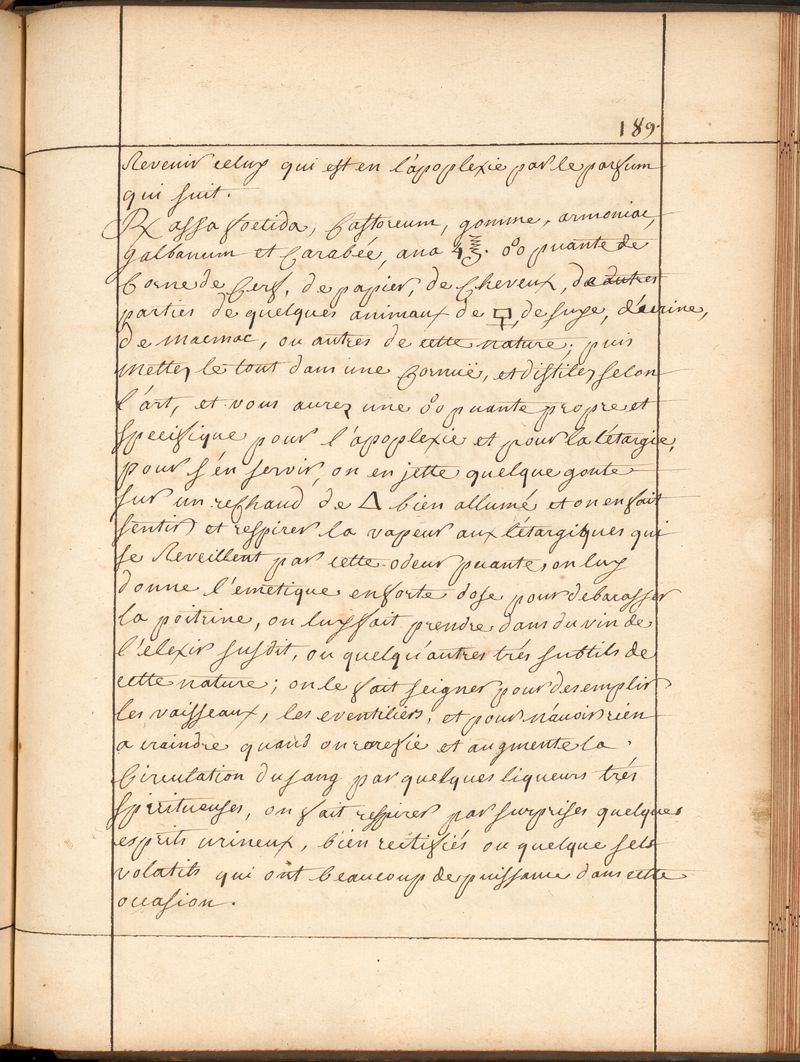 189.
Revenir celuy qui est en l'apoplexie par le parfum
qui suit.
℞ assa foetida, Castoreum, gomme, armoniac,
galbanum et Carabée, ana oo puante de
Corne de Cerf, de papier, de Cheveux, de autres
parties de quelques animaux de de suye, d'
de , ou autres de cette nature; puis
mettez le tout dans une Cornuë, et distilez selon
l'art, et vous aurez une oo puante propre et
specifique pour l'apoplexie et pour la létargie,
pour s'én servir, on en jette quelque goute
sur un rechaud de △ bien allumé et on en fait
sentir et respirer la vapeur aux létargiques qui
se Reveillent par cette odeur puante, on luy
donne l'emetique en forte dose pour debarasser
la poitrine, on luy fait prendre dans du vin de
l'élexir susdit, ou quelqu'autres trés subtils de
cette nature; on le fait seigner pour desemplir
les vaisseaux, les eventiliers, et pour n'avoir rien
a craindre quand on rarefie et augmente la
Circulation du sang par quelques liqueurs trés
spiritueuses, on fait respirer par surprises quelques
esprits urineux, bien rectifiés ou quelque sels
volatils qui ont beaucoup de puissance dans cette
occasion.